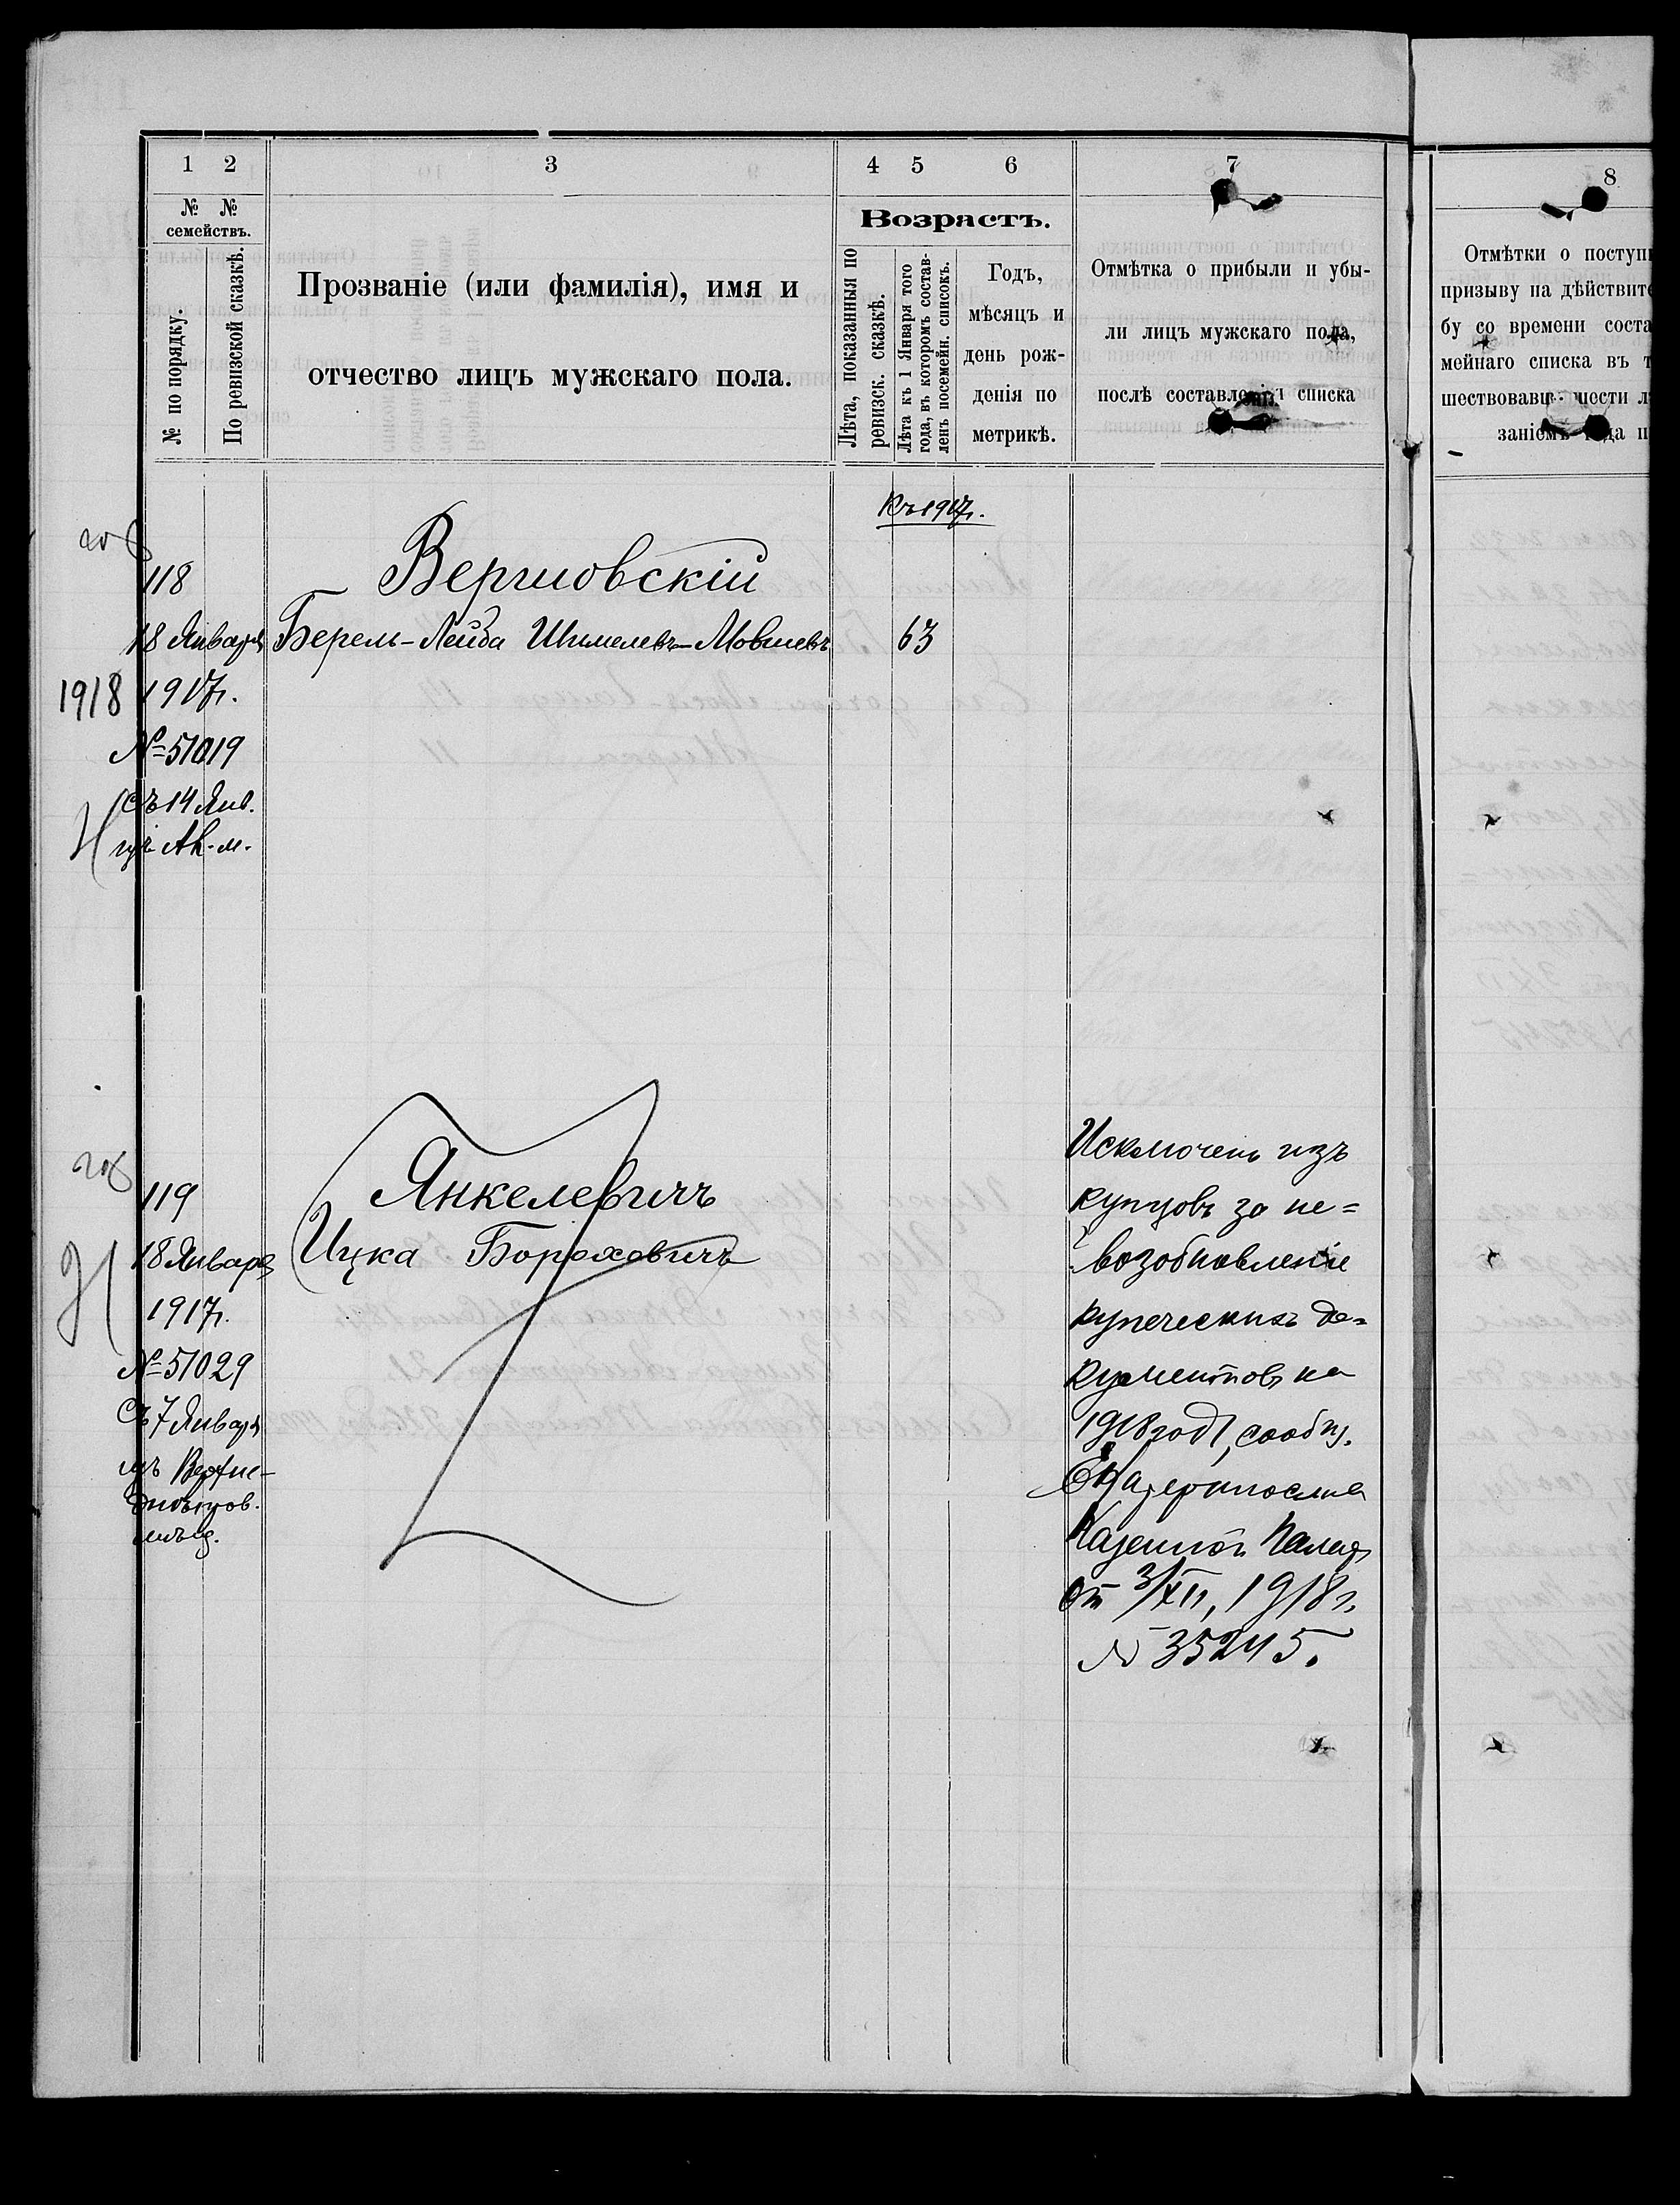 1 2 3 4 5 6 7 8
№ № семействъ.
№ по порядку.
По ревизской сказкѣ.
Прозваніе (или фамилія), имя и
отчество лицъ мужскаго пола.
Возрастъ.
Лѣта, показанныя по
ревизск. сказкѣ.
Лѣта къ 1 Января того
года, въ которомъ состав-
ленъ посемейн. списокъ.
Годъ,
мѣсяцъ и
день рож-
денія по
метрикѣ.
Отмѣтка о прибыли и убы-
ли лицъ мужскаго пола,
послѣ составленія списка
Отмѣтки о поступ
призыву на дѣйствит
бу со времени соста
мейнаго списка въ т
шествовавш шести л
заніемъ года п
Къ 1917г.
118
18 Января
1917г.
1918
№ 51019
съ 14 Янв.
Вергиовскій
Берель-Лейба Шимелевъ-Мовшевъ 63
119
18 Января
1917г.
№ 51029
Съ 7 Января
изъ Верхне-
днѣпров.
мѣщ.
Янкелевичъ
Ицка Бороховичъ
Исключенъ изъ
купцовъ за не=
возобновленіе
купеческихъ до=
кументовъ на
1918 годъ, сообщ.
Екатеринослав
Казенной Палаты
От 3/XII, 1918г.
№ 35245.